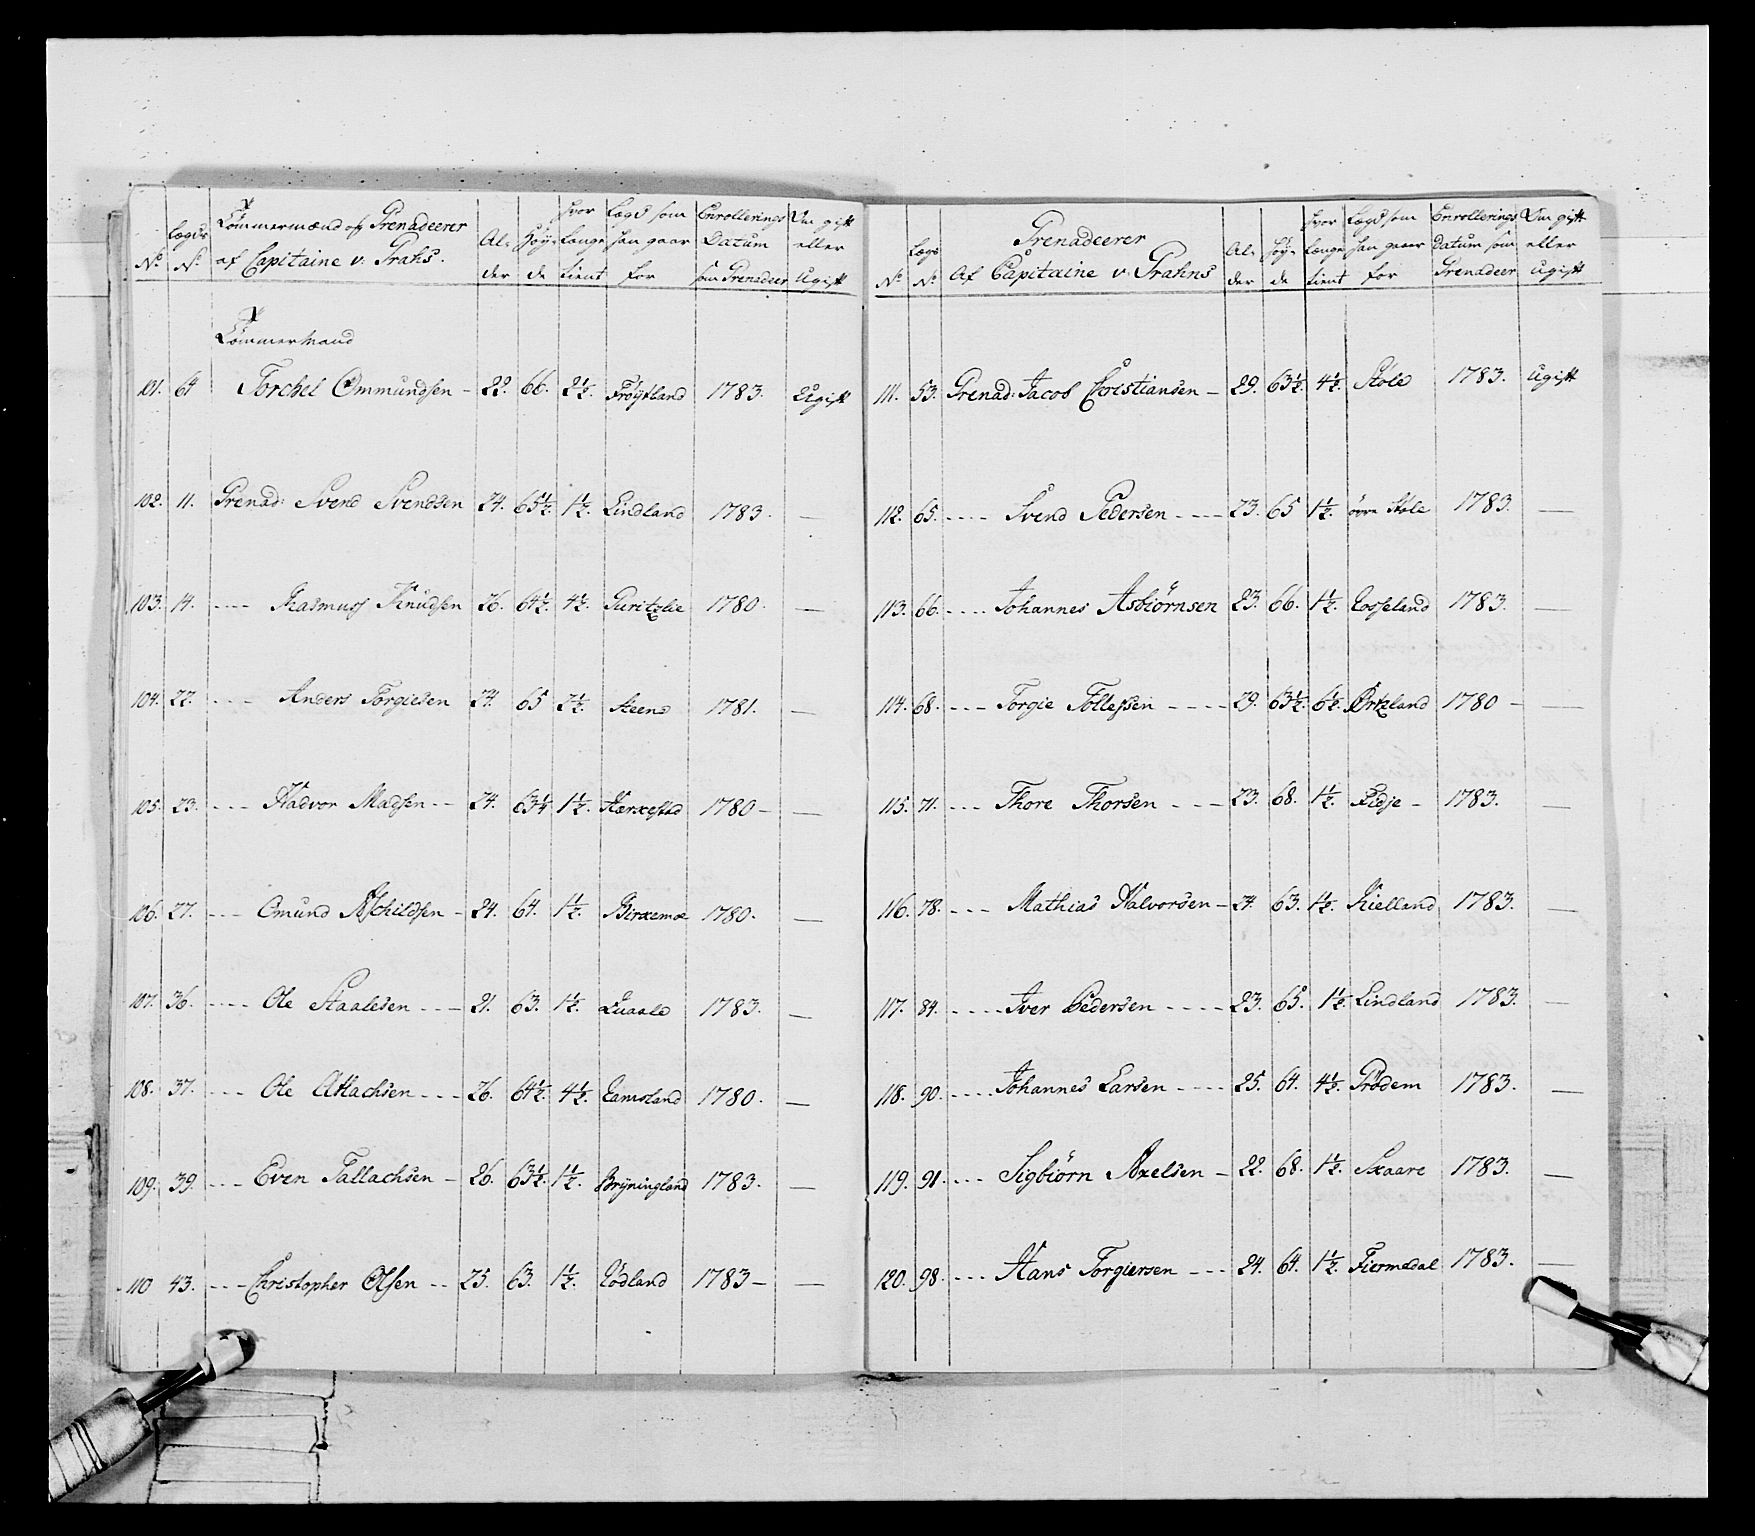 Nº
Lægds Nº
Tømmermænd og Grenadeerer af Capitaine v: Grahs.
Alder
Høyde
Hvor Længe tient
Lægd som han gaar for
Enrollerings Datum som Grenadeer
Om gift eller Ugift
Tømmermand
101. 64 Torchel Ommundsen - 22. 66. 2½. Frøÿtland 1783. Ugift
102. 11. Grenad: Svend Svendsen 24. 65½. 1½. Lindland 1783. —
103. 14. ---- Rasmuss Knudsen 26. 64½. 4½. Guritzlie 1780. —
104. 22. ---- Anders Torgiesen 24. 65 2½. Steend 1781. —
105. 23. ---- Hadvor Madsen -- 24. 63¼ 1½. Herxestad 1780 - —
106. 27. ---- Omund Aschildsen - 24. 64. 1½. Birxemoe 1780. —
107. 36. ---- Ole Staalesen --- 21. 63. 1½. Quaale 1783. —
108. 37. ---- Ole Atlachsen --- 26. 64½. 4½. Eamsland 1780. —
109. 39. ---- Even Tallachsen - 26. 63½. 1½. Brÿningland 1783. —
110 43. ---- Christopher Olsen -- 25. 63. 1½. Rødland 1783 - —
Nº
Lægs Nº
Grenadeerer Af Capitaine v. Grahns
Alder
Høyde
Hvor længe tient
Lægd som han gaar for
Enrollerings Datum som Grenadeer
Om gift eller Ugift
111. 53. Grenad: Jacob Christiansen - 29. 63½. 4½. Støle 1783. Ugift
112. 65. ---- Svend Pedersen ---- 23. 65 1½. øvre Støle 1783. —
113. 66. ---- Johannes Asbiørnsen 23. 66. 1½. Eosseland 1783. —
114. 68. ---- Torgie Tollefsen ---- 29. 63½. 6½. Ørtzland 1780 - —
115. 71. ---- Thore Thorsen --- 23. 68. 1½. Fidje - 1783. —
116. 78. ---- Mathias Halvorsen - 24. 63. 1½. Kielland 1783. —
117. 84. ---- Iver Pedersen ---- 23. 65. 1½ Lindland 1783. —
118. 90. ---- Johannes Larsen ---- 25. 64. 4½. Grödem 1783. —
119. 91. --- Sigbiörn Axelsen - 22. 68. 1½. Skaare 1783. —
120. 98. ---- Hans Torgiersen --- 24. 64. 1½. Fiermedal 1783. —